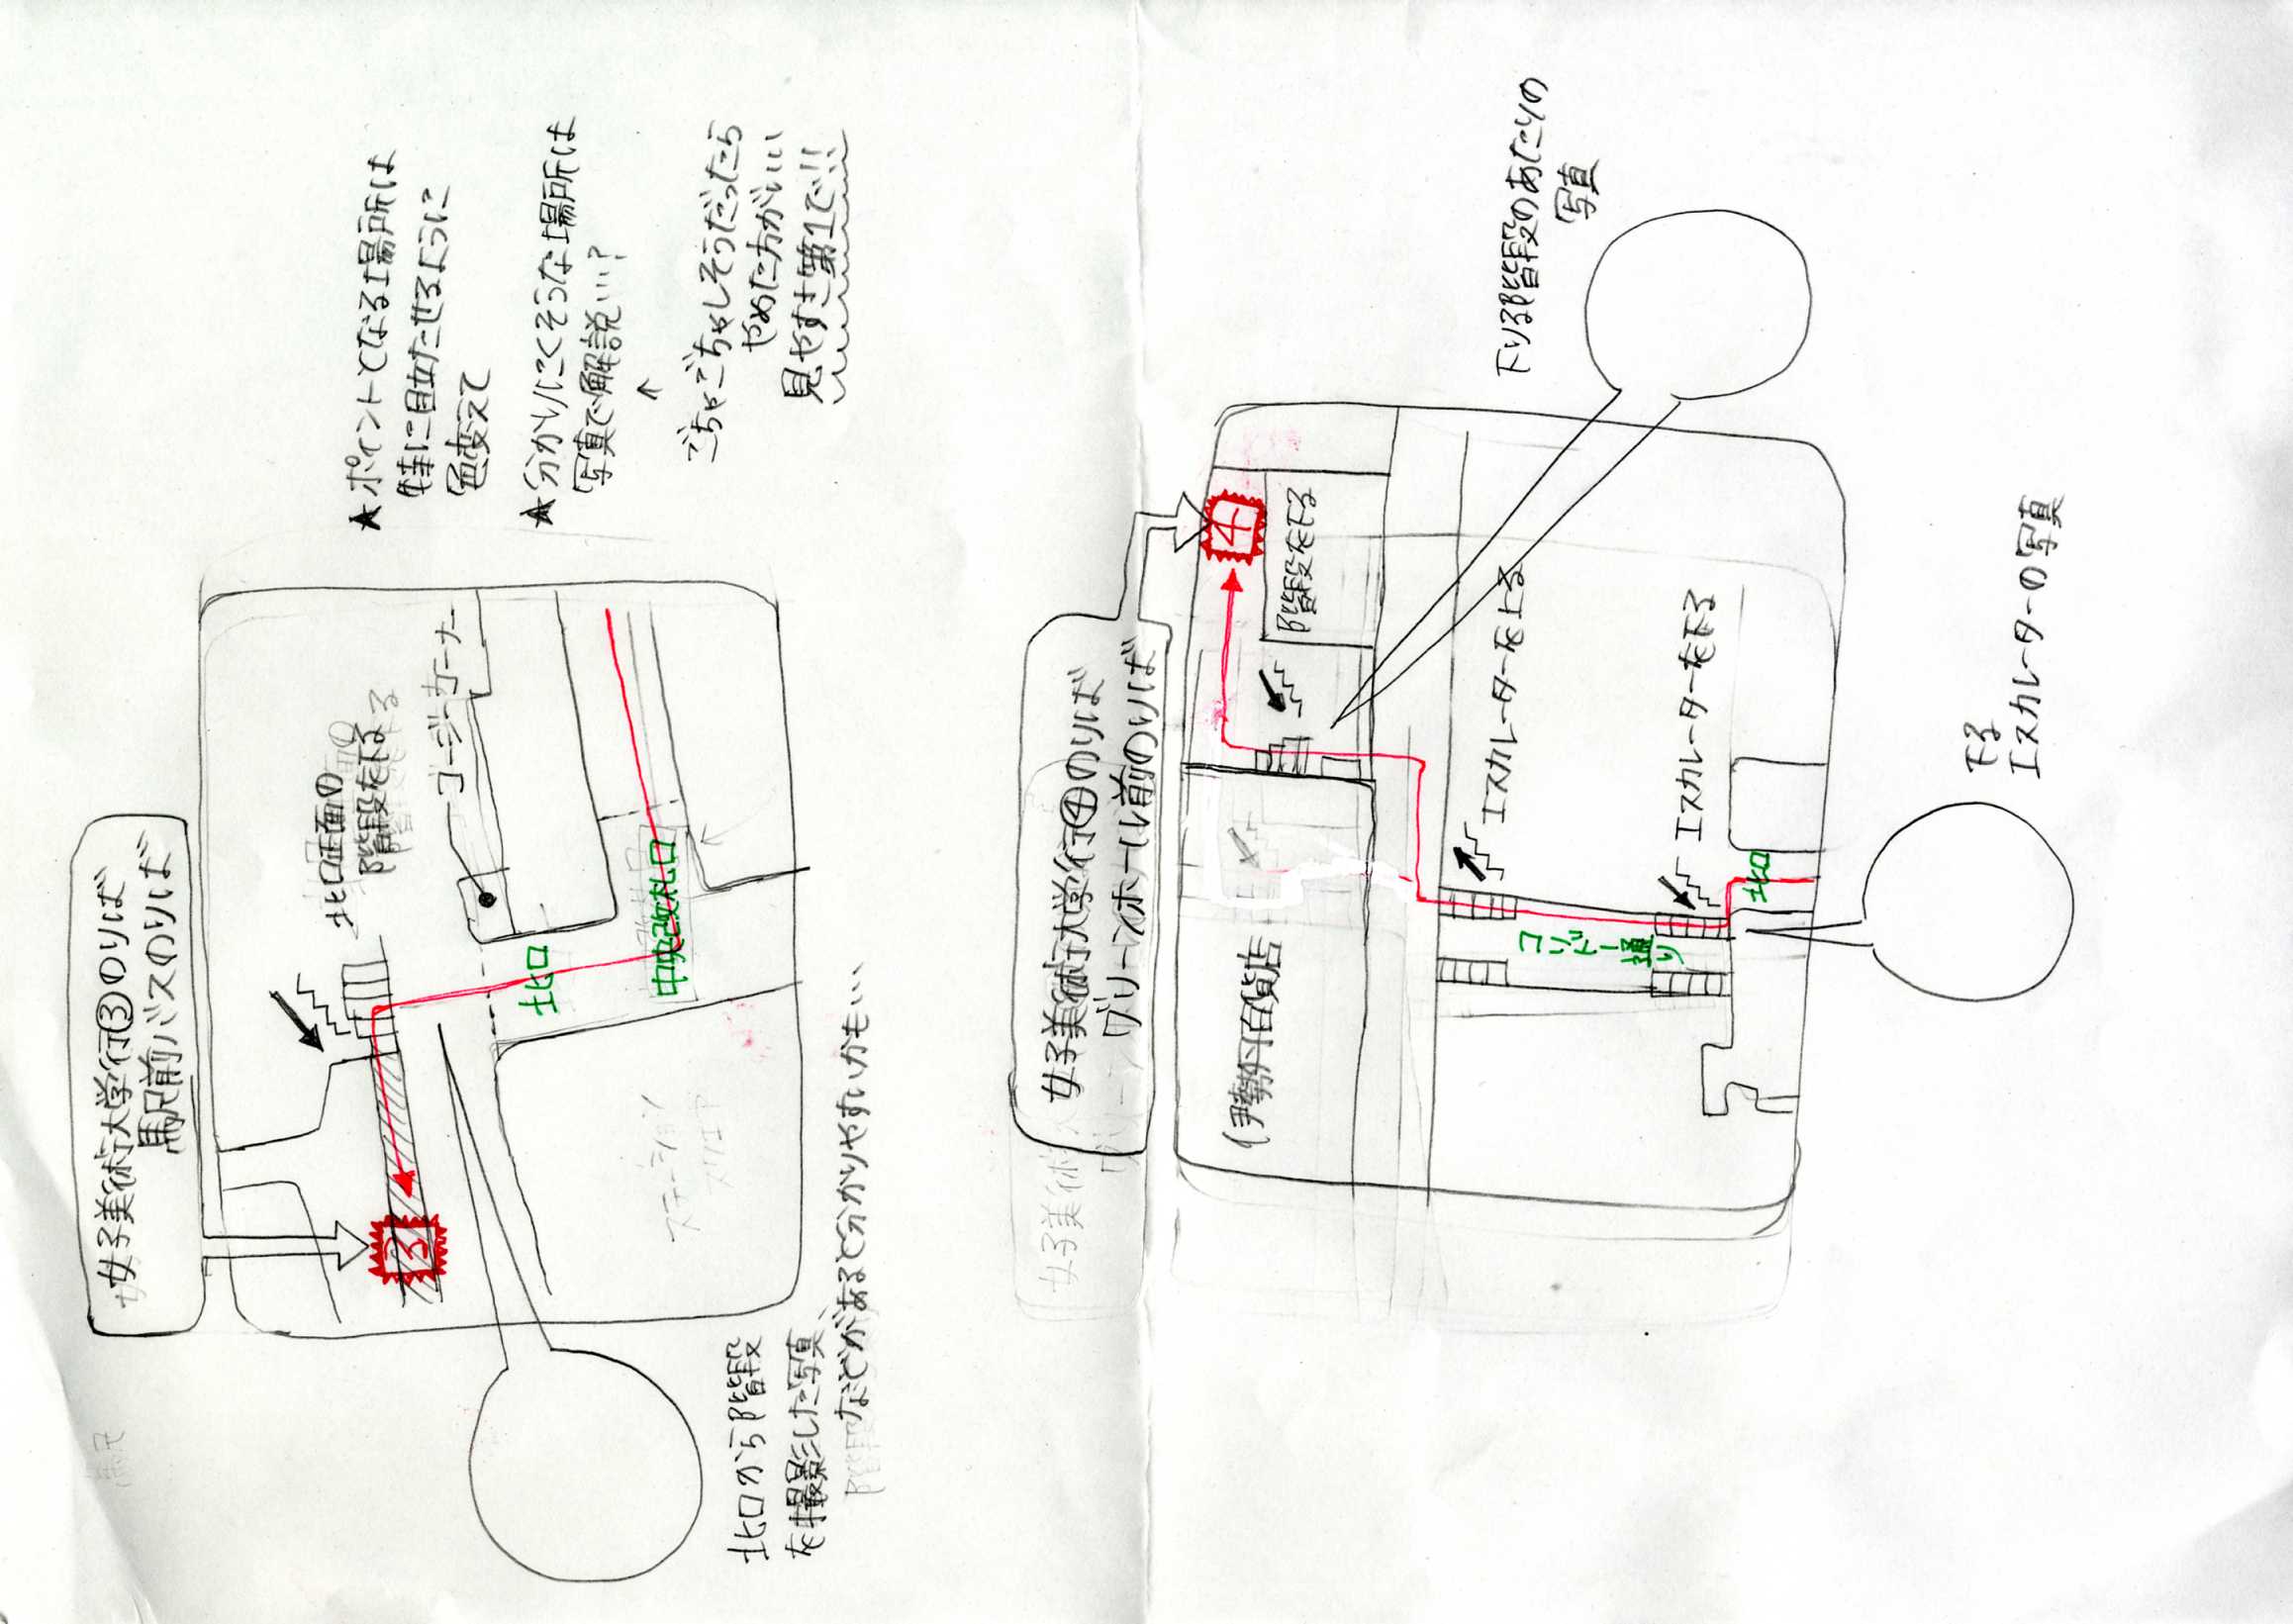 女子美術大学行③のりば
馬尻前バスのりば
北口正面の
階段を下る
コージーコーナー
北口
中央改札口
3
ステーション
スクエア
北口から階段
を撮影した写真
などがあると分かりやすいかも…
★ポイントとなる場所は
特に目立たせるように
色変えて
★分かりにくそうな場所は
写真で解説…?
↑
ごちゃごちゃしそうだったら
やめた方がいい
見やすさ第1で!!
女子美術大学行④のりば
グリーンホール前のりば
4
階段を下る
伊勢丹百貨店
エスカレーターを上る
エスカレーターを下る
コリドー通り
北口
下りる階段のあたりの
写真
下る
エスカレーターの写真